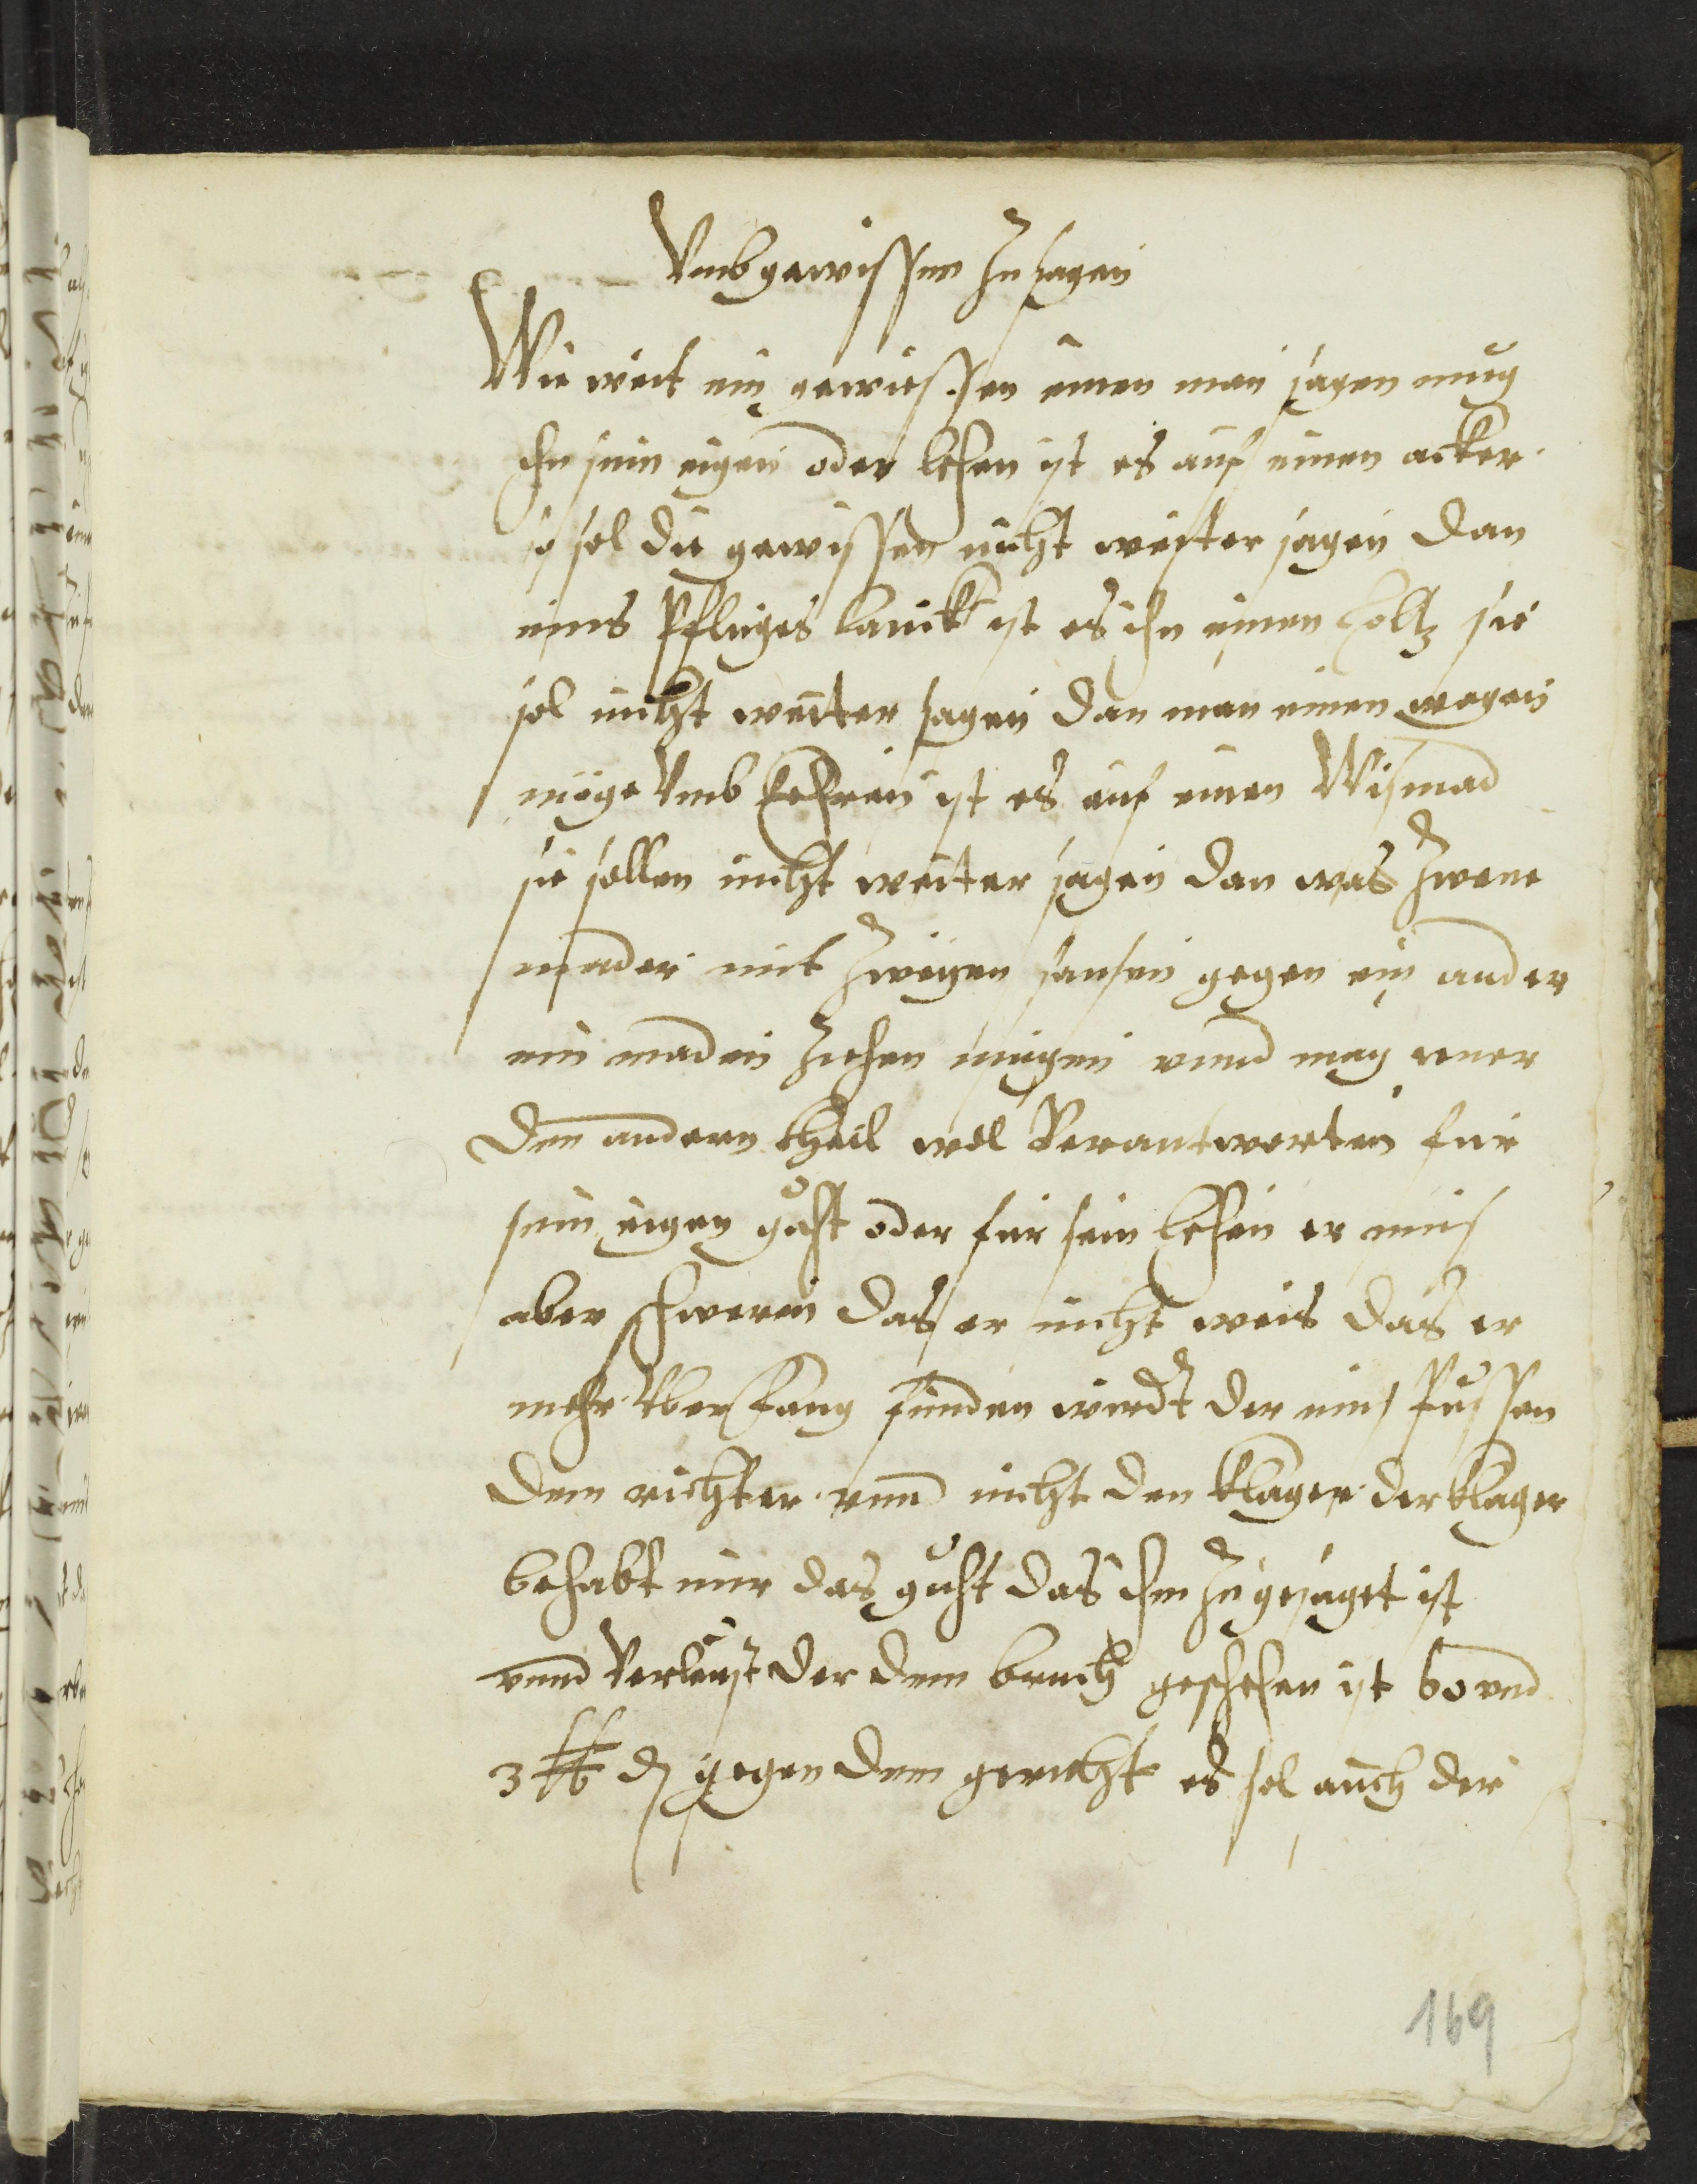 Vmb gewissen zu sagen
Wie weit ein gewiessen einen man sagen mug
Ihn sein eigen oder lehen ist es auf einen acker
so sol die gewissen nicht weiter sagen dan
eins Pfluges lanck ist es ihn einen holtz sie
sol nicht weiter sagen dan man einen wagen
möge Vmb kehren ist es auf einen Wismad
sie sollen nicht weiter sagen dan was zwene
mader mit zweyen sensen gegen ein ander
ein maden ziehen mugen vnnd mag ener
den andern theil wol Verantworten fur
sein eigen guht oder fur sein lehen er mus
aber schweren das er nicht weis das er
mehr Vberfang funden wirdt der mus pussen
dem richter vnnd nicht den klager der klager
behabt nur das guht das ihm zu gesaget ist
vnnd Verleust der dem bruch geschehen ist 60 vnd
3 ℔ ₰ gegen dem gericht es sol auch der
169